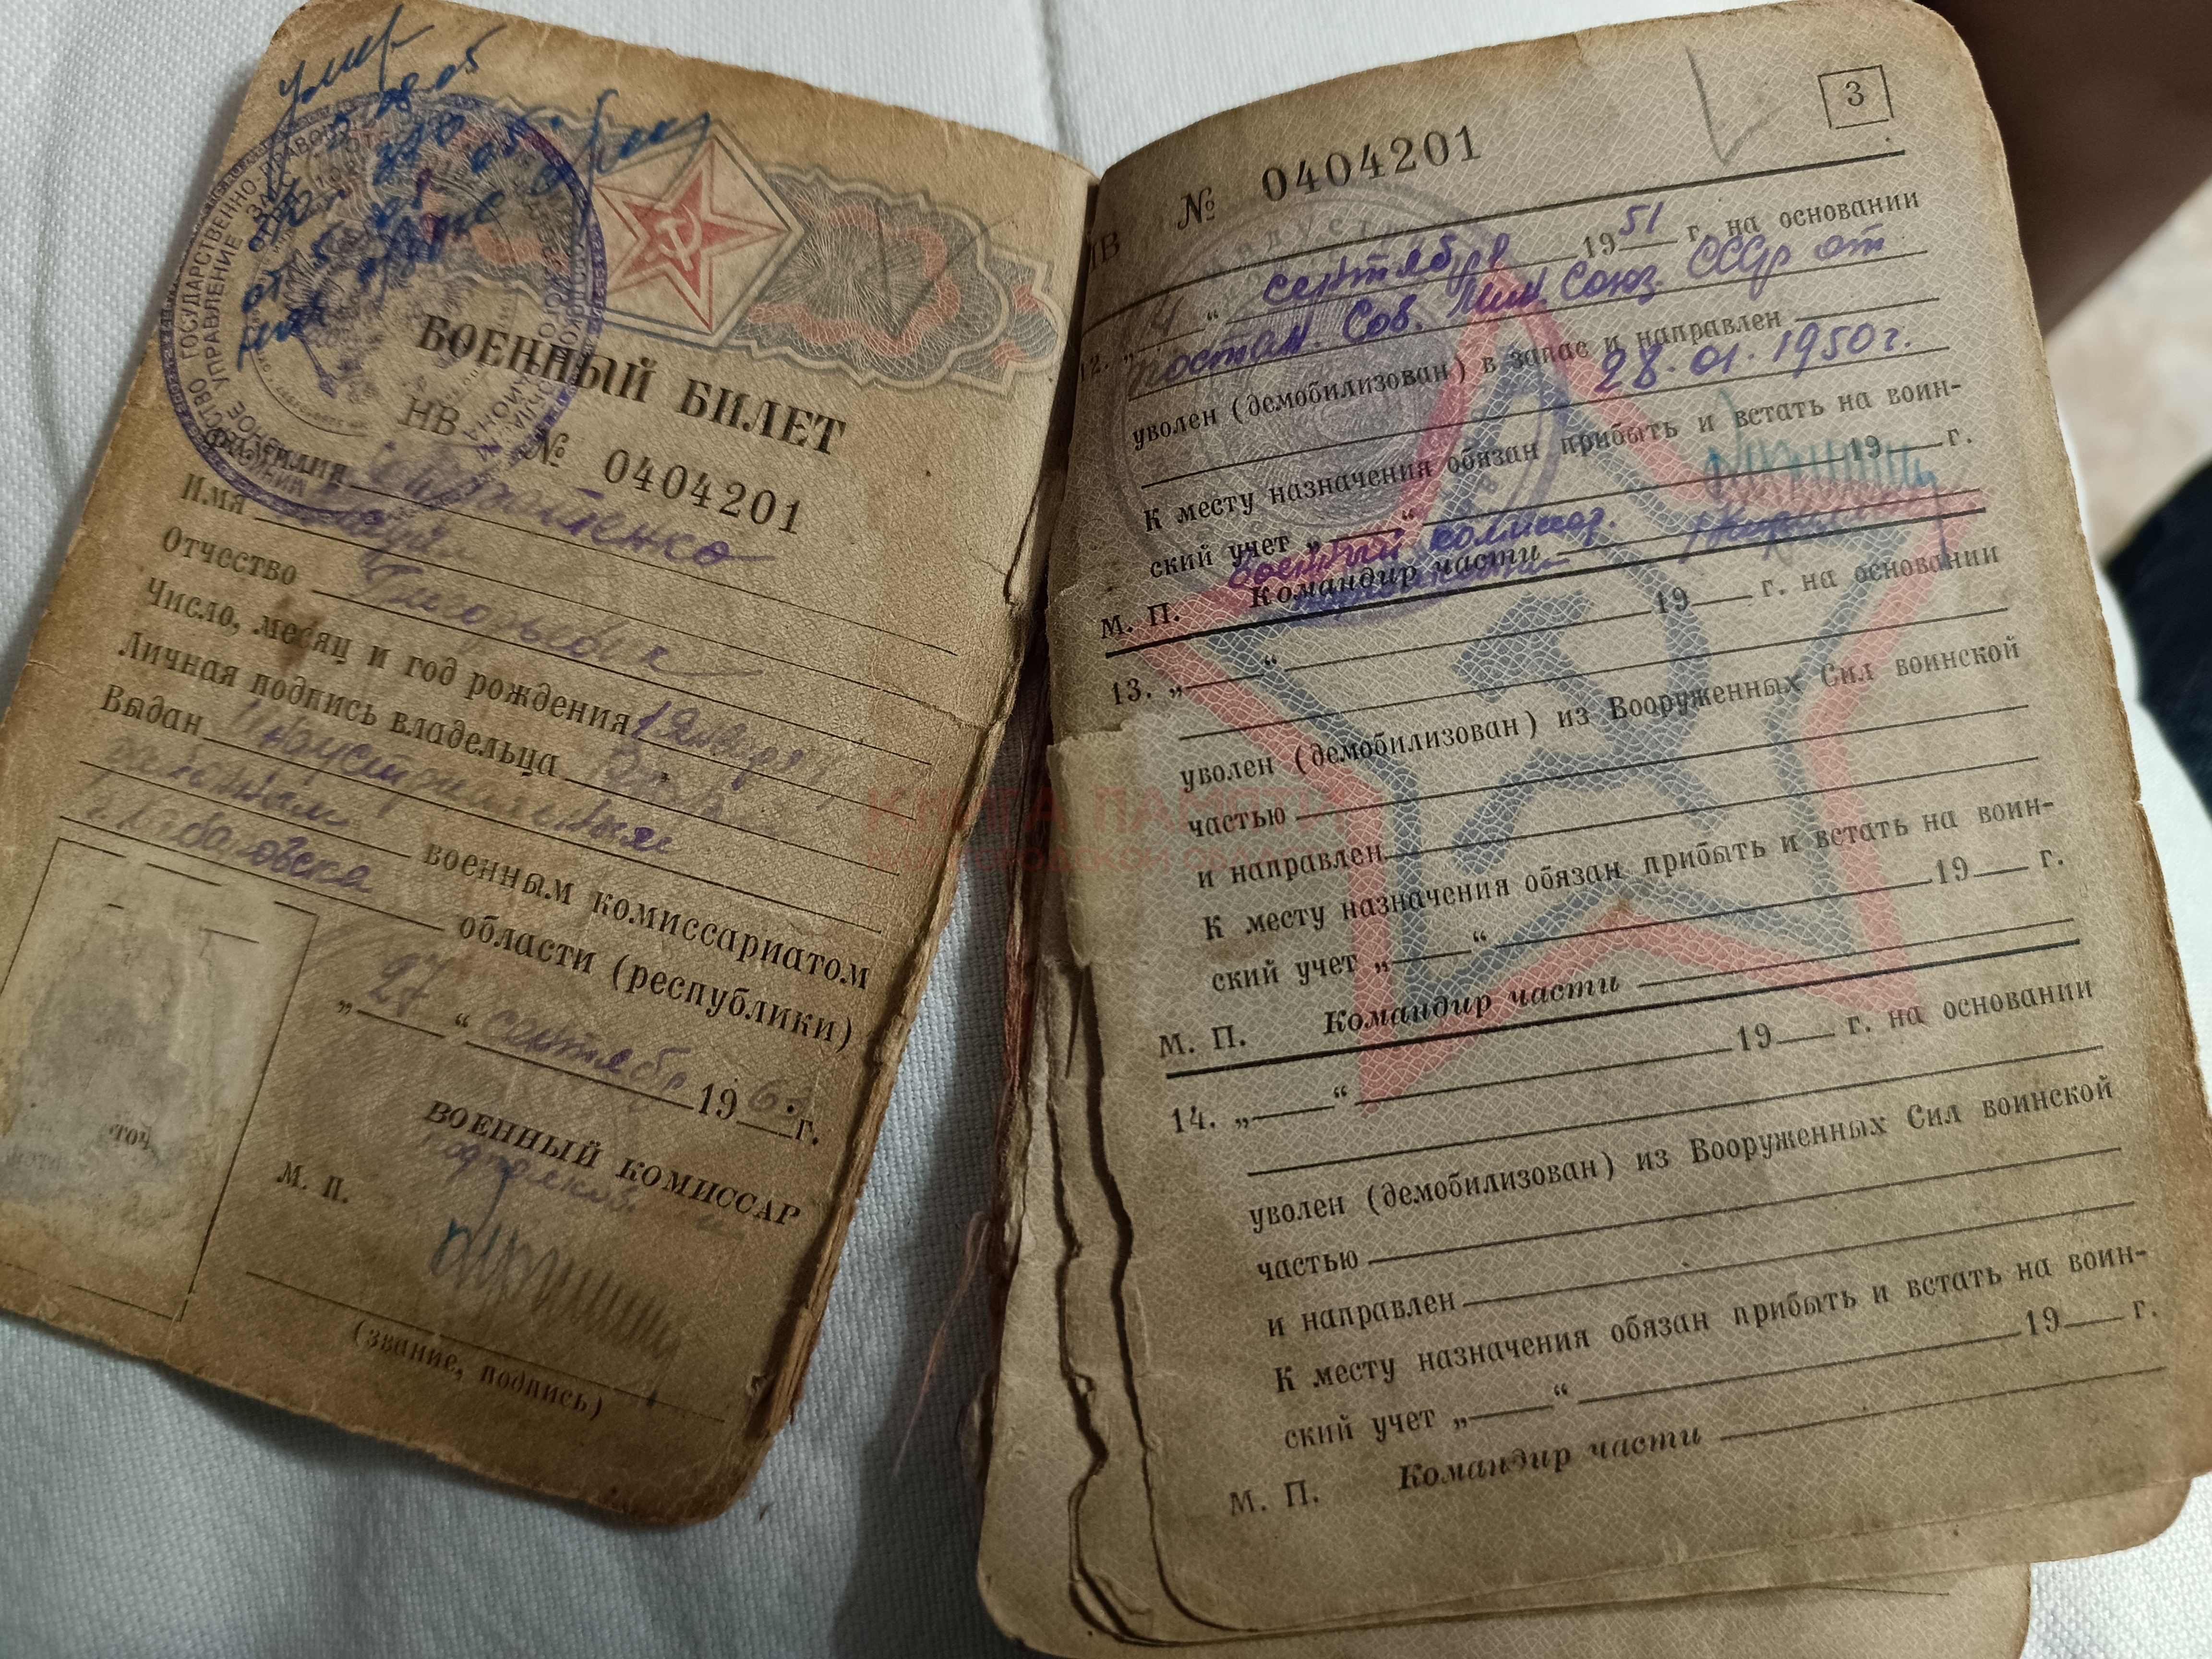 умер
5.08.05
от 5.08.05
ГОСУДАРСТВЕННО-ПРАВОВОЕ
УПРАВЛЕНИЕ
ЗАГС
ВОЕННЫЙ БИЛЕТ
НВ № 0404201
Фамилия
Имя
Отчество Григорьевич
Число, месяц и год рождения 1 января
Личная подпись владельца
Выдан Индустриальным
районным военным комиссариатом
г. Хабаровска области (республики)
„27“ сентября 196 г.
ВОЕННЫЙ КОМИССАР
М. П. подполков.
(звание, подпись)
3
НВ № 0404201
12. „4“ сентября 1951 г. на основании
постан. Сов. Мин. Союз. ССР от
уволен (демобилизован) в запас и направлен
28.01.1950г.
К месту назначения обязан прибыть и встать на воин-
ский учет „ “ 19 г.
Военный комиссар.
М. П. Командир части
13. „ “ 19 г. на основании
уволен (демобилизован) из Вооруженных Сил воинской
частью
и направлен
К месту назначения обязан прибыть и встать на воин-
ский учет „ “ 19 г.
М. П. Командир части
14. „ “ 19 г. на основании
уволен (демобилизован) из Вооруженных Сил воинской
частью
и направлен
К месту назначения обязан прибыть и встать на воин-
ский учет „ “ 19 г.
М. П. Командир части
КНИГА ПАМЯТИ